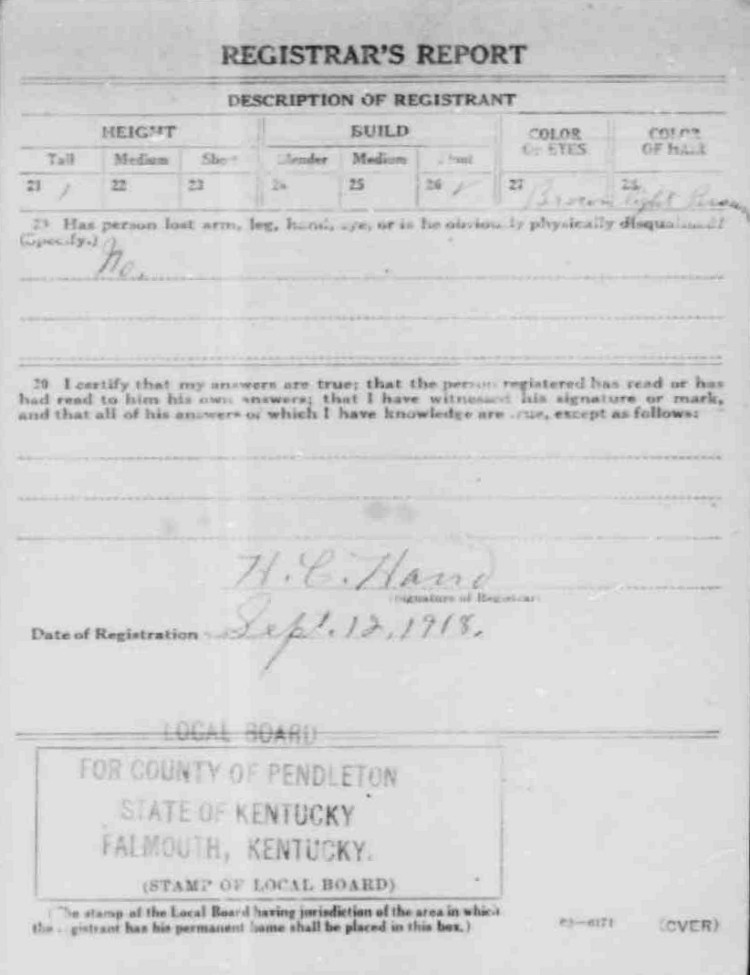 REGISTRAR'S REPORT
DESCRIPTION OF REGISTRANT
HEIGHT BUILD COLOR OF EYES COLOR OF HAIR
Tall Medium Short Slender Medium Stout
21 / 22 23 24 25 26 ✓ 27 Brown 28 light Brown
29 Has person lost arm, leg, hand, eye, or is he obviously physically disqualified?
(Specify.)
No.
30 I certify that my answers are true; that the person registered has read or has
had read to him his own answers; that I have witnessed his signature or mark,
and that all of his answers of which I have knowledge are true, except as follows:
H. C. Hand
(Signature of Registrar)
Date of Registration Sept. 12, 1918.
LOCAL BOARD
FOR COUNTY OF PENDLETON
STATE OF KENTUCKY
FALMOUTH, KENTUCKY.
(STAMP OF LOCAL BOARD)
(The stamp of the Local Board having jurisdiction of the area in which
the registrant has his permanent home shall be placed in this box.)
03—6171 (OVER)